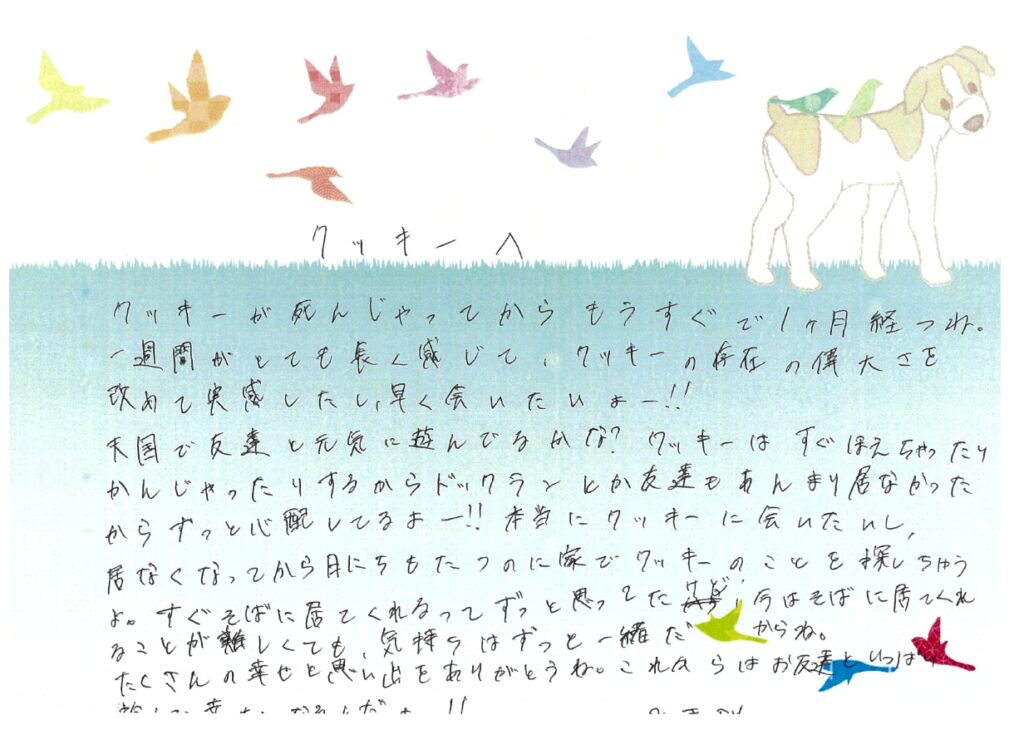 クッキーへ
クッキーが死んじゃってからもうすぐで1ヶ月経つね。
一週間がとても長く感じて、クッキーの存在の偉大さを
改めて実感したし、早く会いたいよー!!
天国で友達と元気に遊んでるかな?クッキーはすぐほえちゃったり
かんじゃったりするからドックランとか友達もあんまり居なかった
からずっと心配してるよー!!本当にクッキーに会いたいし、
居なくなってから月にちもたつのに家でクッキーのことを探しちゃう
よ。すぐそばに居てくれるってずっと思ってたけど、今はそばに居てくれ
ることが難しくても、気持ちはずっと一緒だからね。
たくさんの幸せと思い出をありがとうね。これからはお友達といっぱい